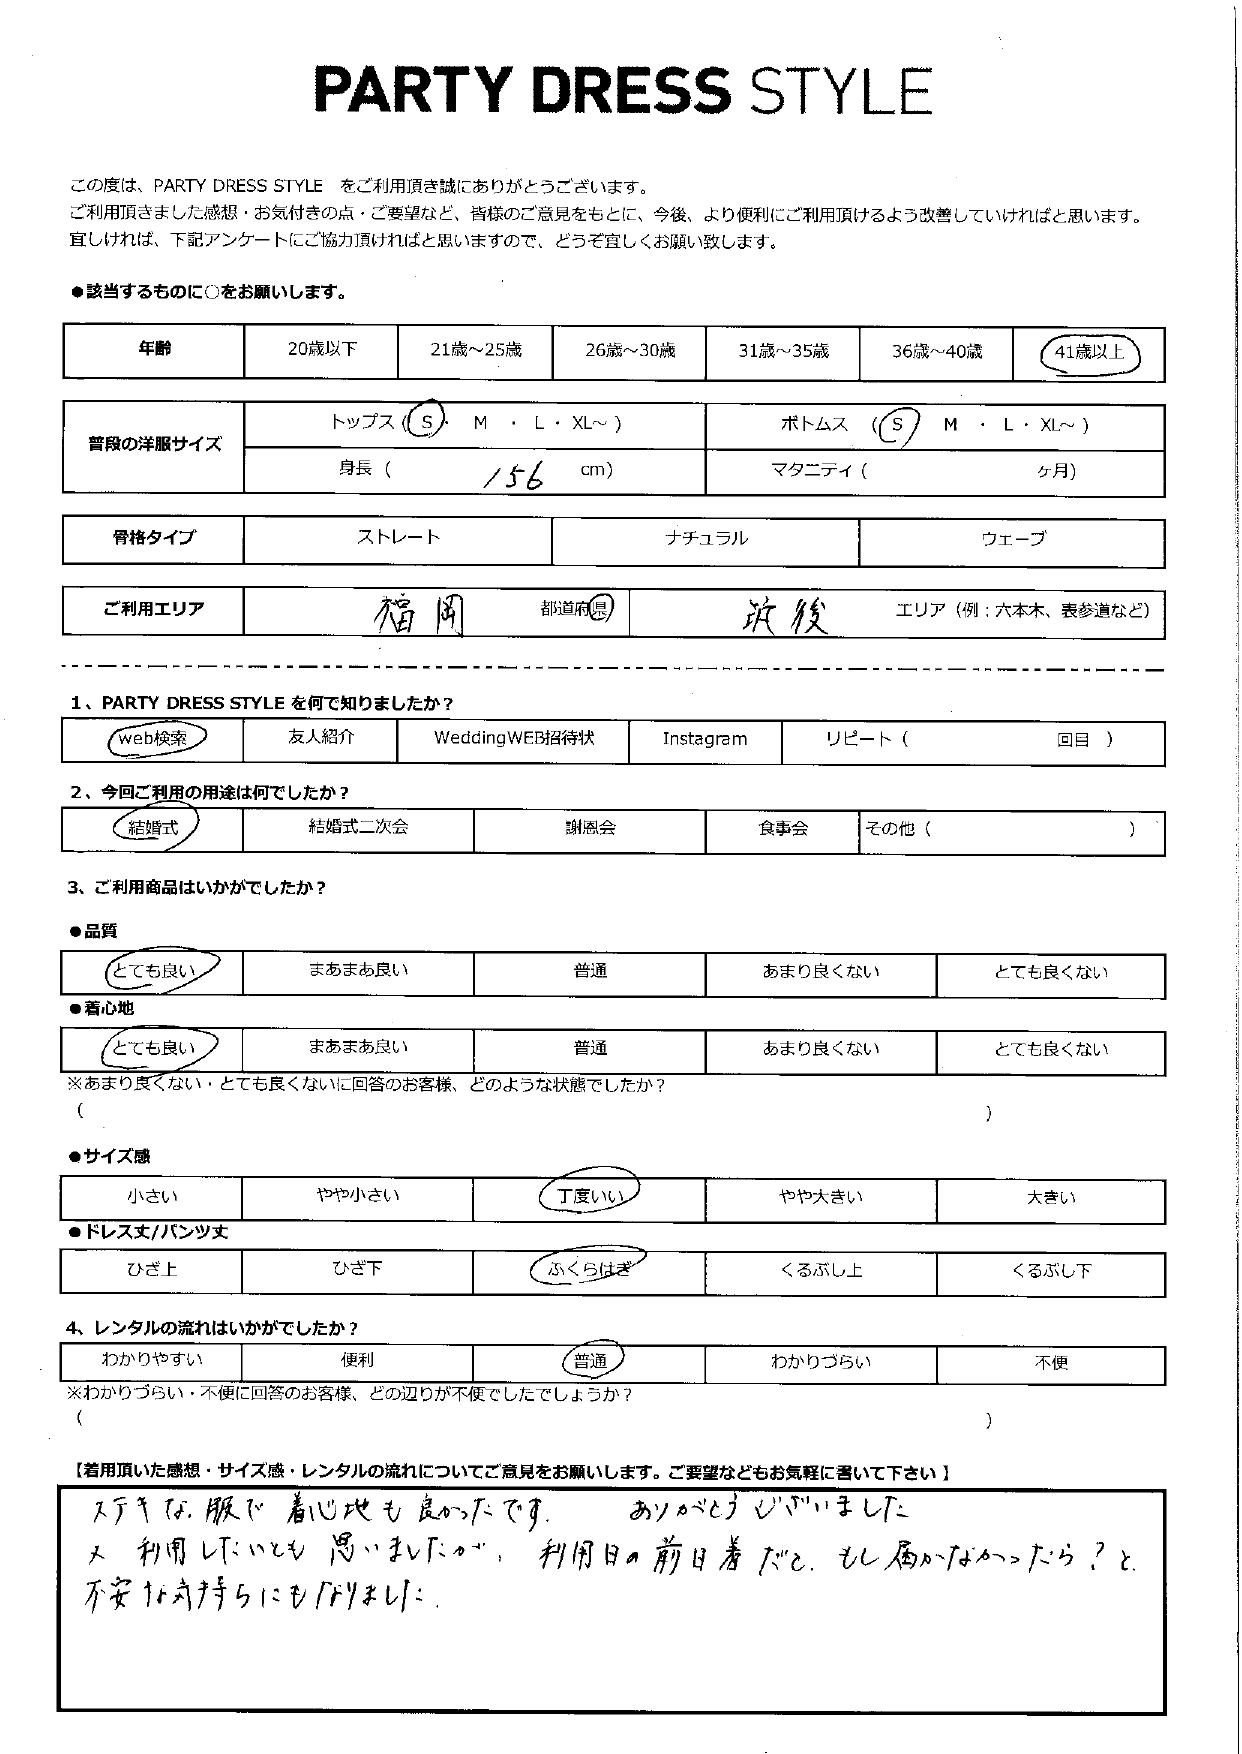 PARTY DRESS STYLE
この度は、PARTY DRESS STYLE をご利用頂き誠にありがとうございます。
ご利用頂きました感想・お気付きの点・ご要望など、皆様のご意見をもとに、今後、より便利にご利用頂けるよう改善していければと思います。
宜しければ、下記アンケートにご協力頂ければと思いますので、どうぞ宜しくお願い致します。
●該当するものに○をお願いします。
年齢 20歳以下 21歳～25歳 26歳～30歳 31歳～35歳 36歳～40歳 41歳以上
普段の洋服サイズ トップス (S・ M ・ L・ XL～ ) ボトムス (S M ・ L・ XL～ )
身長 ( 156 cm) マタニティ ( ヶ月)
骨格タイプ ストレート ナチュラル ウェーブ
ご利用エリア 福岡 都道府県 筑後 エリア (例：六本木、表参道など)
1、PARTY DRESS STYLE を何で知りましたか？
web検索 友人紹介 WeddingWEB招待状 Instagram リピート ( 回目 )
2、今回ご利用の用途は何でしたか？
結婚式 結婚式二次会 謝恩会 食事会 その他 ( )
3、ご利用商品はいかがでしたか？
●品質
とても良い まあまあ良い 普通 あまり良くない とても良くない
●着心地
とても良い まあまあ良い 普通 あまり良くない とても良くない
※あまり良くない・とても良くないに回答のお客様、どのような状態でしたか？
( )
●サイズ感
小さい やや小さい 丁度いい やや大きい 大きい
●ドレス丈/パンツ丈
ひざ上 ひざ下 ふくらはぎ くるぶし上 くるぶし下
4、レンタルの流れはいかがでしたか？
わかりやすい 便利 普通 わかりづらい 不便
※わかりづらい・不便に回答のお客様、どの辺りが不便でしたでしょうか？
( )
【着用頂いた感想・サイズ感・レンタルの流れについてご意見をお願いします。ご要望などもお気軽に書いて下さい】
ステキな服で 着心地も良かったです. ありがとうございました
又 利用したいとも 思いましたが、利用日の前日着だと、もし届かなかったら？と、
不安な気持ちにもなりました.